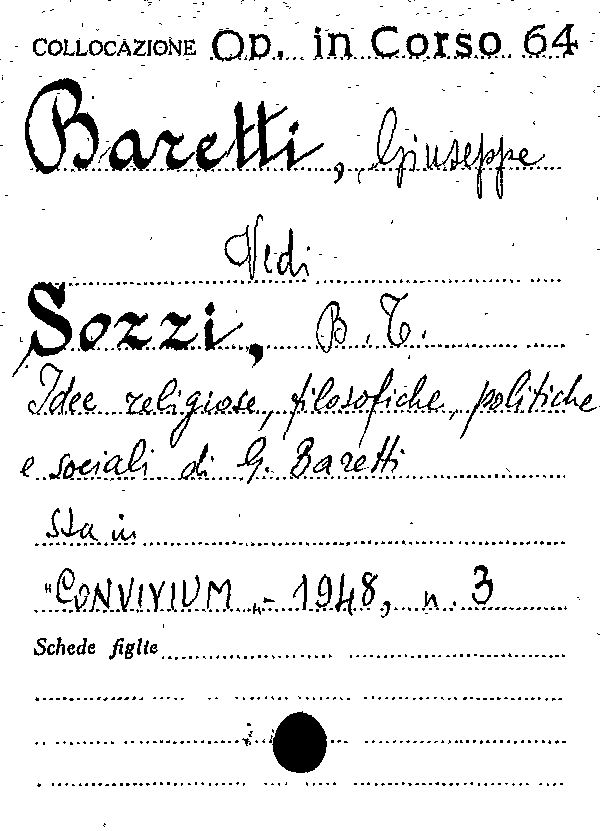 COLLOCAZIONE Op. in Corso 64
Baretti, Giuseppe
Vedi
Sozzi, B. T.
Idee religiose, filosofiche, politiche
e sociali di G. Baretti
sta in
"CONVIVIUM" - 1948, n. 3
Schede figlie